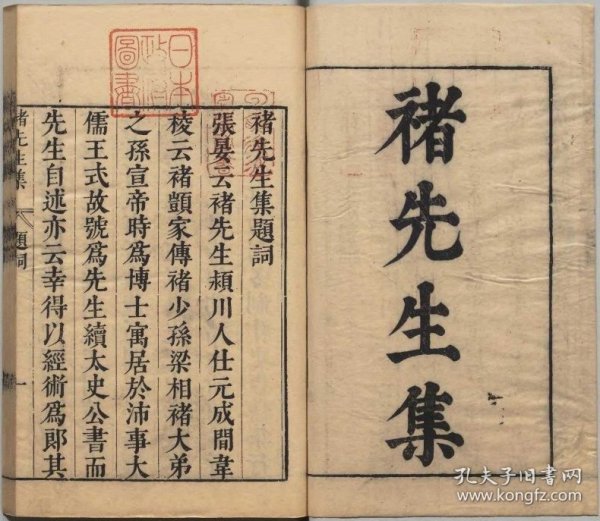 褚先生集
褚先生集題詞
張晏云褚先生潁川人仕元成間韋
稜云褚顗家傳褚少孫梁相褚大弟
之孫宣帝時爲博士寓居於沛事大
儒王式故號爲先生續太史公書而
先生自述亦云幸得以經術爲郎其
褚先生集 題詞 一
日本
政府
圖書
孔夫子旧书网
www.kongfz.com